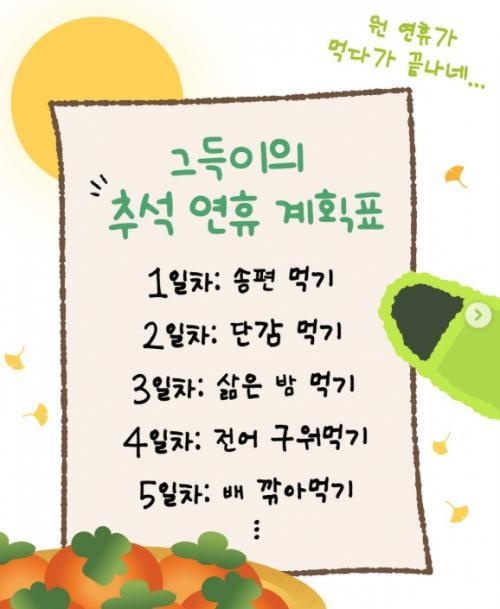 뭔 연휴가
먹다가 끝나네...
그득이의
추석 연휴 계획표
1일차: 송편 먹기
2일차: 단감 먹기
3일차: 삶은 밤 먹기
4일차: 전어 구워먹기
5일차: 배 깎아먹기
⋮